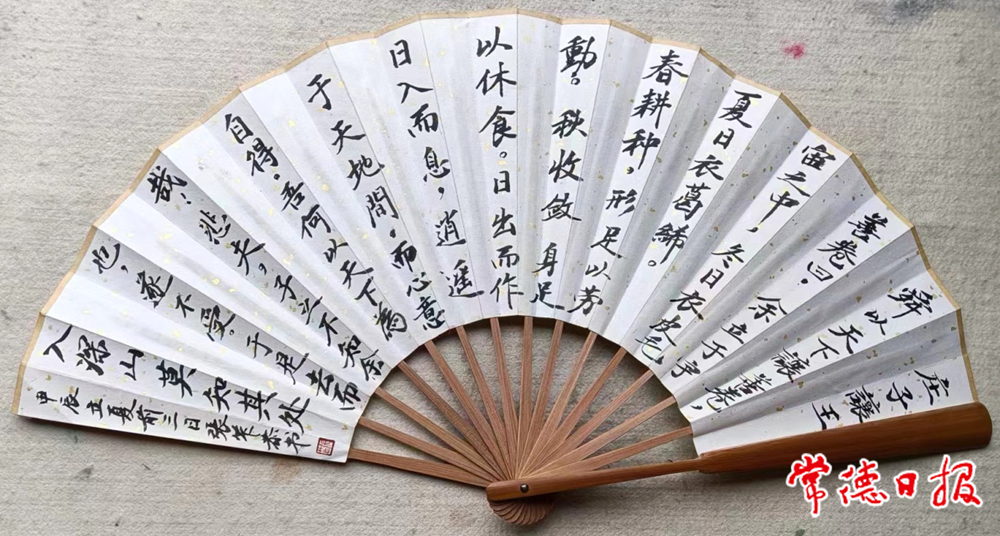 庄子讓王
舜以天下讓善卷，
善卷曰：余立于宇
宙之中，冬日衣皮毛
夏日衣葛絺。
春耕种，形足以劳
動。秋收敛身足
以休食。日出而作
日入而息，逍遥
于天地間，而心意
自得。吾何以天下為
哉！悲夫，子之不知余
也，遂不受。于是去而
入深山莫知其处
甲辰立夏前三日張書
常德日报